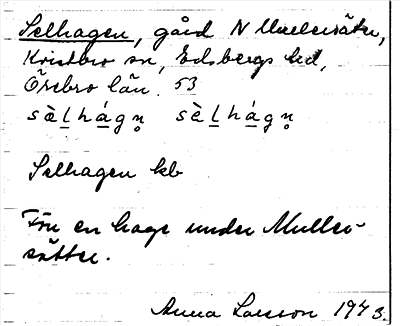 Selhagen, gård N Mullersäter,
Kvistbro sn, Edsbergs hd,
Örebro län. 53
sὲlhágn̥ sὲlhágn̥
Selhagen kb
Förr en hage under Muller-
sätter.
Anna Larsson 1973.